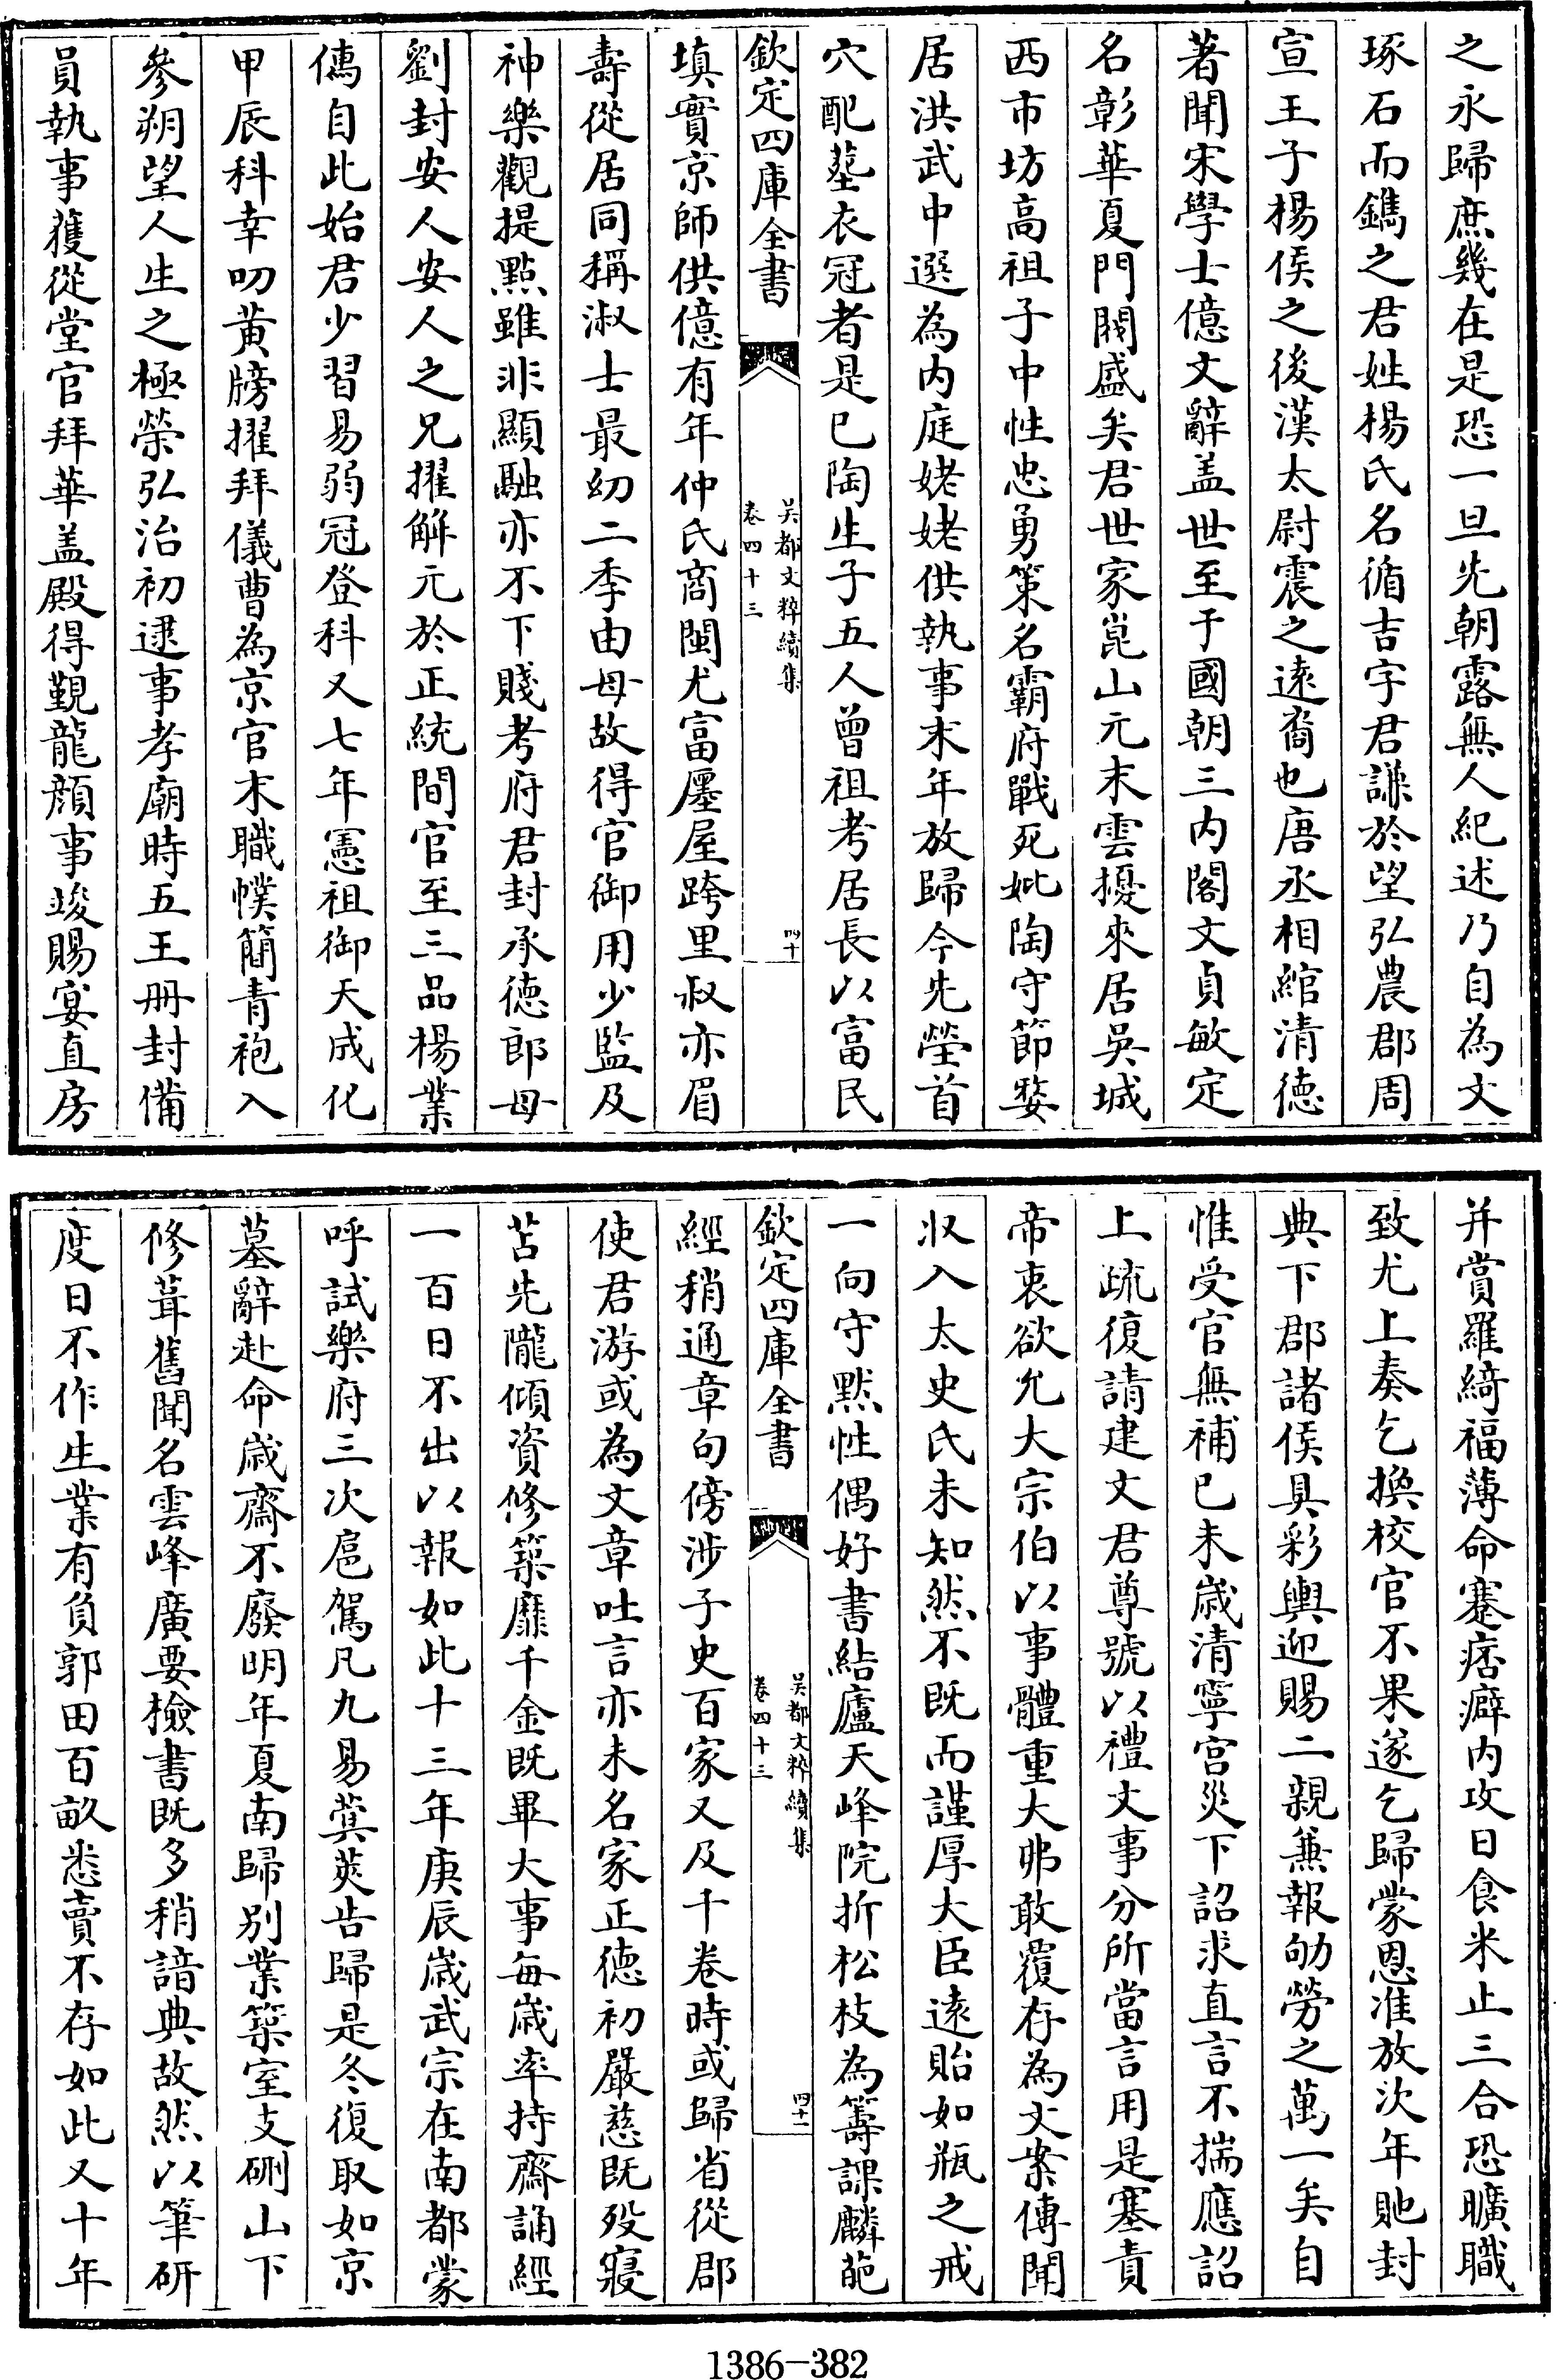 之永歸庶幾在是恐一旦先朝露無人紀述乃自為文
琢石而鐫之君姓楊氏名循吉字君謙於望弘農郡周
宣王子楊侯之後漢太尉震之遠裔也唐丞相綰清德
著聞宋學士億文辭盖世至于國朝三内閣文貞敏定
名彰華夏門閥盛矣君世家崑山元末雲擾來居吳城
西市坊高祖子中性忠勇策名霸府戰死妣陶守節婺
居洪武中選為内庭姥姥供執事末年放歸今先塋首
穴配塟衣冠者是已陶生子五人曾祖考居長以富民
欽定四庫全書
吳都文粹續集
卷四十三
四十
填實京師供億有年仲氏商閩尤富廛屋跨里叔亦眉
壽從居同稱淑士最幼二季由母故得官御用少監及
神樂觀提點雖非顯融亦不下賤考府君封承德郎母
劉封安人安人之兄擢解元於正統間官至三品楊業
儒自此始君少習易弱冠登科又七年憲祖御天成化
甲辰科幸叨黄牓擢拜儀曹為京官末職幞簡青袍入
參朔望人生之極榮弘治初逮事孝廟時五王冊封備
員執事獲從堂官拜華盖殿得覲龍顔事竣賜宴直房
并賞羅綺福薄命蹇痞癖内攻日食米止三合恐曠職
致尤上奏乞換校官不果遂乞歸蒙恩准放次年貤封
典下郡諸侯具彩輿迎賜二親兼報劬勞之萬一矣自
惟受官無補已未歲清寧宮災下詔求直言不揣應詔
上疏復請建文君尊號以禮文事分所當言用是塞責
帝衷欲允大宗伯以事體重大弗敢覆存為文案傳聞
収入太史氏未知然不既而謹厚大臣遠貽如瓶之戒
一向守黙性偶好書結廬天峰院折松枝為籌課麟葩
欽定四庫全書
吳都文粹續集
卷四十三
四十一
經稍通章句傍涉子史百家又及千卷時或歸省從郡
使君游或為文章吐言亦未名家正德初嚴慈既歿寢
苫先隴傾資修築靡千金既畢大事每歲率持齋誦經
一百日不出以報如此十三年庚辰歲武宗在南都蒙
呼試樂府三次扈駕凡九易蓂莢告歸是冬復取如京
墓辭赴命歲齋不廢明年夏南歸别業築室支硎山下
修葺舊聞名雲峰廣要檢書既多稍諳典故然以筆研
度日不作生業有負郭田百畝悉賣不存如此又十年
1386-382